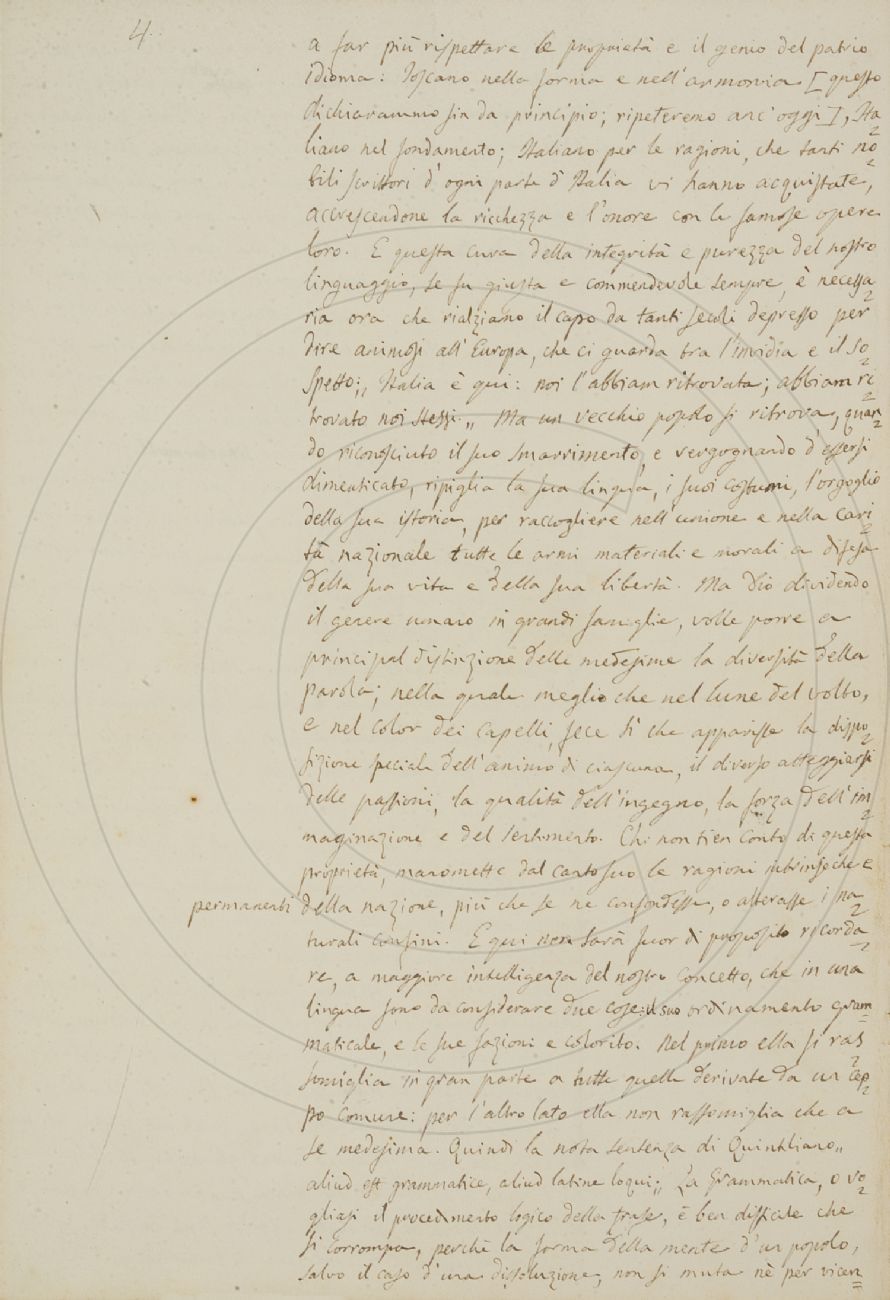 4.
a far più rispettare le proprietà e il genio del patrio
idioma: Toscano nella forma e nell'armonia [questo
dichiarammo sin da principio; ripeteremo anc'oggi], Ita=
liano nel fondamento; Italiano per le ragioni, che tanti no=
bili scrittori d'ogni parte d'Italia vi hanno acquistate,
accrescendone la ricchezza e l'onore con le famose opere
loro. E questa cura della integrità e purezza del nostro
linguaggio, se fu giusta e commendevole sempre, è necessa=
ria ora che rialziamo il capo da tanti secoli depresso per
dire animosi all'Europa, che ci guarda tra l'invidia e il so=
spetto: „ Italia è qui: noi l'abbiam ritrovata; abbiam ri=
trovato noi stessi. „ Ma un vecchio popolo si ritrova, quan=
do riconosciuto il suo smarrimento, e vergognando d'essersi
dimenticato, ripiglia la sua lingua, i suoi costumi, l'orgoglio
della sua istoria, per raccogliere nell'unione e nella cari=
tà nazionale tutte le armi materiali e morali a difesa
della sua vita e della sua libertà. Ma Dio dividendo
il genere umano in grandi famiglie, volle porre a
principal distinzione delle medesime la diversità della
parola; nella quale meglio che nel lume del volto,
e nel color dei capelli, fece sì che apparisse la dispo=
sizione speciale dell'animo di ciascuna, il diverso atteggiarsi
delle passioni, la qualità dell'ingegno, la forza dell'im=
maginazione e del sentimento. Chi non tien conto di questa
proprietà, manomette dal canto suo le ragioni intrinseche e
permanenti della nazione, più che se ne confondesse, o alterasse i na=
turali confini. E qui non sarà fuor di proposito ricorda=
re, a maggiore intelligenza del nostro concetto, che in una
lingua sono da considerare due cose: il suo ordinamento gram=
maticale, e le sue fazioni e colorito. Nel primo ella si ras=
somiglia in gran parte a tutte quelle derivate da un cep=
po comune: per l'altro lato ella non rassomiglia che a
se medesima. Quindi la nota sentenza di Quintiliano „
aliud est grammatice, aliud latine loqui: „ La Grammatica, o vo=
gliasi il procedimento logico della frase, è ben difficile che
si corrompa, perchè la forma della mente d'un popolo,
salvo il caso d'una dissoluzione, non si muta nè per vicen=